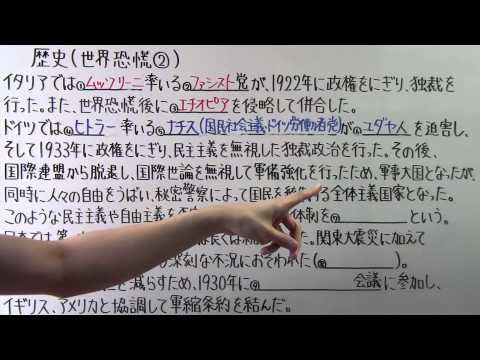 歴史(世界恐慌②)
イタリアでは@ムッソリーニ率いる@ファシスト党が、1922年に政権をにぎり、独裁を
行った。また、世界恐慌後に@エチオピアを侵略して併合した。
ドイツでは@ヒトラー率いる@ナチス(国民社会主義ドイツ労働者党)が@ユダヤ人を迫害し、
そして1933年に政権をにぎり、民主主義を無視した独裁政治を行った。その後、
国際連盟から脱退し、国際世論を無視して軍備強化を行ったため、軍事大国となったが、
同時に人々の自由をうばい、秘密警察によって国民を
る全体主義国家となった。
このような民主主義や自由主義を
体制を@ という。
関東大震災に加えて
深刻な不況におそわれた(@ )。
減らすため、1930年に@ 会議に参加し、
イギリス、アメリカと協調して軍縮条約を結んだ。